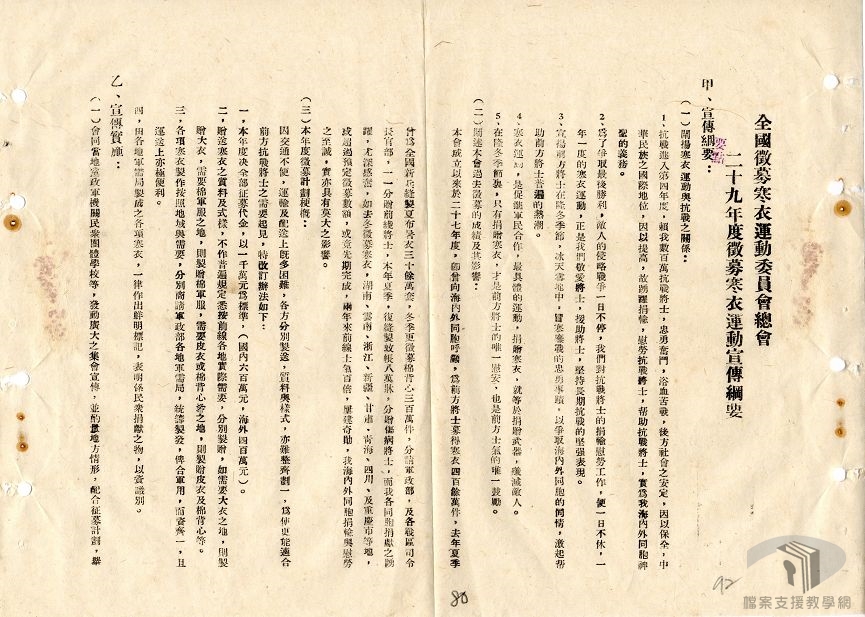 全國徵募寒衣運動委員會總會
二十九年度徵募寒衣運動宣傳綱要
甲、宣傳綱要：
要點
(一)闡揚寒衣運動與抗戰之關係：
1、抗戰進入第四年度，賴我數百萬抗戰將士，忠勇奮鬥，浴血苦戰，後方社會之安定，因以保全，中
華民族之國際地位，因以提高，故踴躍捐輸，慰勞抗戰將士，幫助抗戰將士，實爲我海內外同胞神
聖的義務。
2、爲了爭取最後勝利，敵人的侵略戰爭一日不停，我們對抗戰將士的捐輸慰勞工作，便一日不休，一
年一度的寒衣運動，正是我們敬愛將士，援助將士，堅持長期抗戰的堅强表現。
3、宣揚前方將士在隆冬季節，冰天雪地中，冒寒鏖戰的忠勇事蹟，以爭取海內外同胞的同情，激起幫
助前方將士普遍的熱潮。
4、寒衣運動，是促進軍民合作，最具體的運動，捐贈寒衣，就等於捐贈武器，殲滅敵人。
5、在隆冬季節裏，只有捐贈寒衣，才是前方將士的唯一慰安，也是前方士氣的唯一鼓勵。
(二)闡述本會過去募的成績及其影響：
本會成立以來於二十七年度，卽曾向海內外同胞呼籲，爲前方將士募得寒衣四百餘萬件，去年夏季
曾爲全國新兵縫製夏布暑衣三十餘萬套，冬季更徵募棉背心三百萬件，分請軍政部，及各戰區司令
長官部，一一分贈前綫將士，本年夏季，復縫製蚊帳八萬牀，分贈傷病將士，而我各同胞捐獻之踴
躍，尤深感奮，如去冬徵募寒衣，湖南、雲南、浙江、新疆、甘肅、青海、四川、及重慶市等地，
或超過預定徵募數額，或竟先期完成，兩年來前線士氣百倍，屢建奇勛，我海內外同胞捐輸與慰勞
之至誠，實亦具有莫大之影響。
(三)本年度徵募計劃梗概：
因交通不便，運輸及配送上既多困難，各方分別製送，質料與樣式，亦難整齊劃一，爲使更能適合
前方抗戰將士之需要起見，特改訂辦法如下：
一，本年度决全部征募代金，以一千萬元爲標準，(國內六百萬元，海外四百萬元)。
二，贈送寒衣之質料及式樣，不作普遍規定悉按前綫各地實際需要，分別製贈，如需要大衣之地，則製
贈大衣，需要棉軍服之地，則製贈棉軍服，需要皮衣或棉背心等之地，則製贈皮衣及棉背心等。
三，各項寒衣製作按照地域與需要，分別商請軍政部各地軍需局，統籌製發，俾合軍用，而資齊一，且
運送上亦極便利。
四，由各地軍需局製成之各項寒衣，一律作出鮮明標記，表明係民衆捐獻之物，以資識別。
乙、宣傳實施：
(一)會同當地黨政軍機關民衆團體學校等，發動廣大之集會宣傳，並酌量地方情形，配合征募計劃，舉
80
92
檔案支援教學網